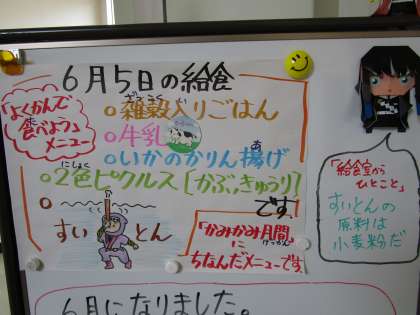 6月5日の給食
「よくかんで
食べよう」
メニュー
ざっこく
○雑穀入りごはん
○牛乳
あ
○いかのかりん揚げ
にしょく
○2色ピクルス[かぶ、きゅうり]
○すいとん
です。
「かみかみ月間」
げっかん
に
ちなんだメニューです。
「給食室から
ひとこと」
すいとんの
原料は
小麦粉だ
6月になりました。